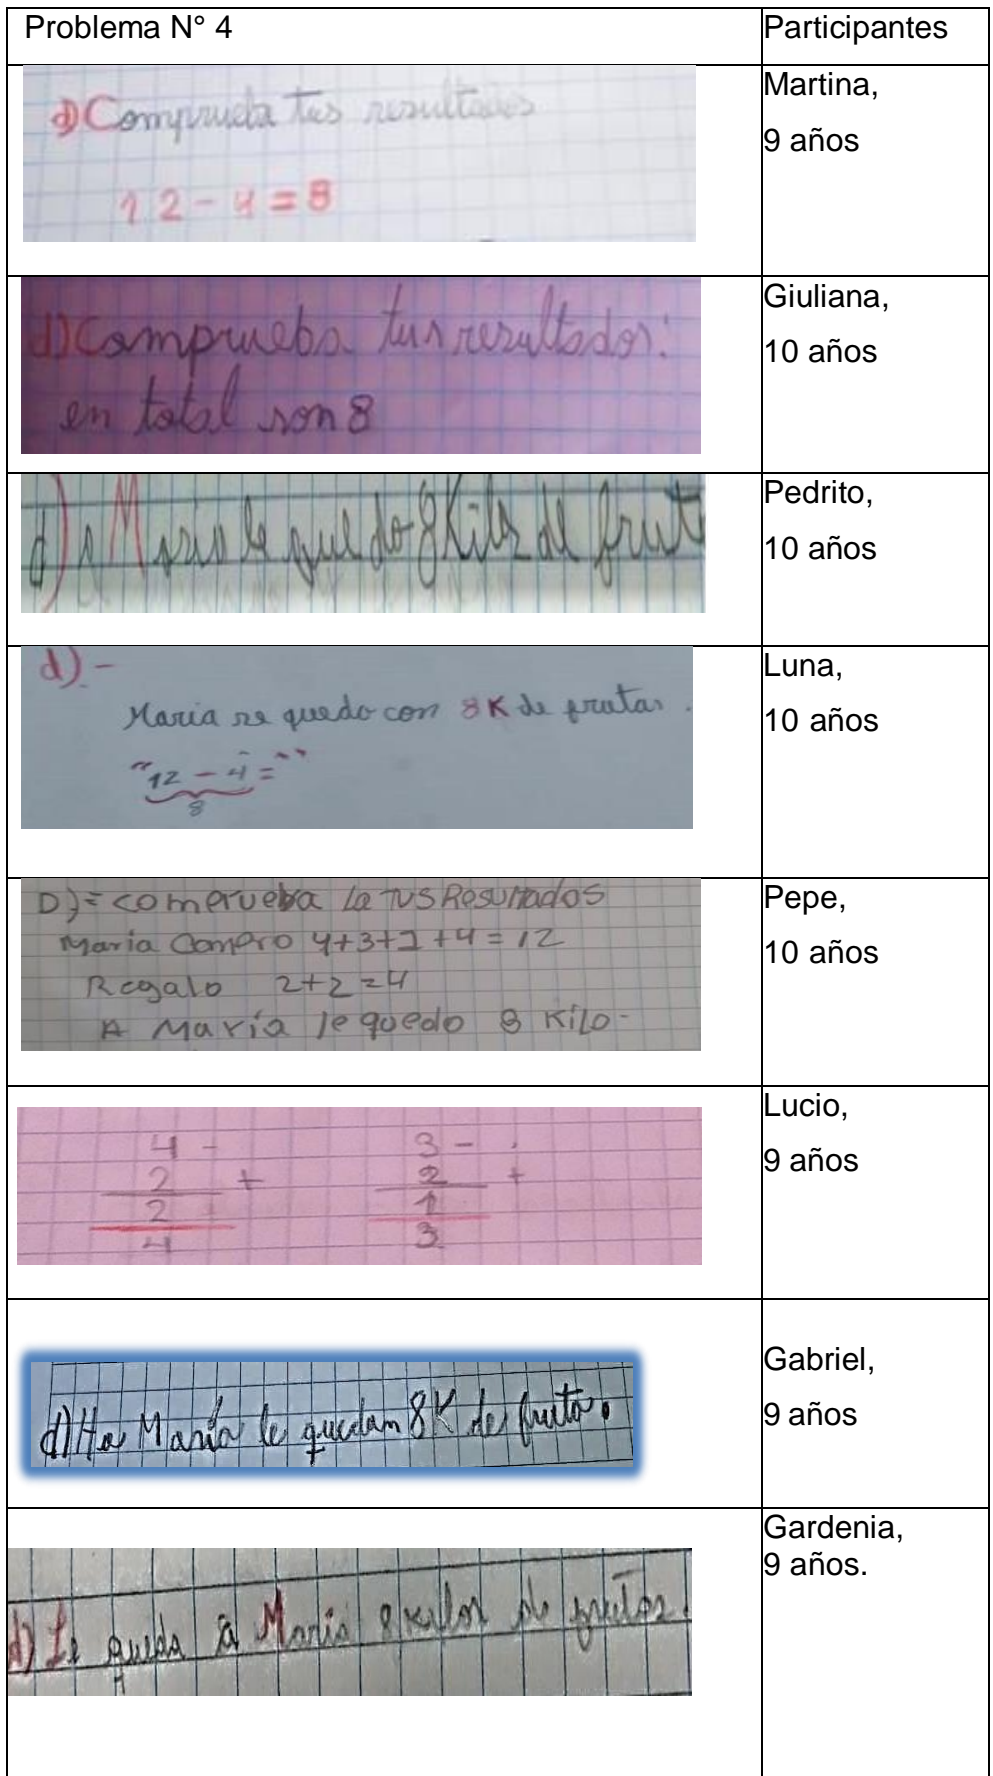 Problema N° 4
Participantes
d) Comprueba tus resultados
12 - 4 = 8
Martina,
9 años
d) Comprueba tus resultados:
en total son 8
Giuliana,
10 años
d) a Maria le quedo 8 Kilos de frut
Pedrito,
10 años
d).-
Maria se quedo con 8K de frutas.
"12 - 4 = "
8
Luna,
10 años
D)= comerueba La TUS Resultados
Maria Compro 4+3+1+4 = 12
Regalo 2+2=4
A María le quedo 8 KiLo-
Pepe,
10 años
4 - 3 -
2 + 2 +
2 1
4 3
Lucio,
9 años
d) Ha María le quedan 8K de fruta.
Gabriel,
9 años
d) Le queda a Maria 8 kilos de frutas.
Gardenia,
9 años.